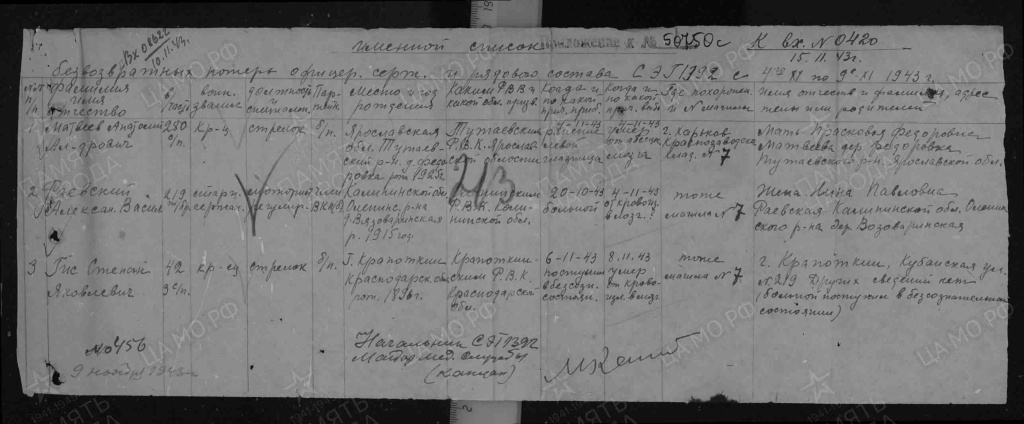 Вх 08622
10.11.43.
Именной список
Приложение к №50750с
К вх. №0420
15.11.43г.
безвозвратных потерь офицер. серж. и рядового состава СЭГ1392 с 4го XI по 9е XI 1943 г.
№№ п/п
Фамилия имя отчество
части
воин. звание
должность и специальн.
Партийн
Место и год рождения
Каким Р.В.К. какой обл. призв.
Когда и
Когда и
Где похоронен и № могилы
Имя отчество и фамилия, адрес жены или родителей
1
Матвеев Анатолий Ал-дрович
280 с/п.
кр-ц.
стрелок
б/п.
Ярославская обл. Тутаевский р-н. д. Федоровка рож 1925г.
Тутаевским Р.В.К. Ярославской области
4-11-43
умер
г. Харьков Краснозаводское клад. №7
Мать Прасковья Федоровна Матвеева дер. Федоровка Тутаевского р-н. Ярославской обл.
2
Раевский Алексан. Васил
219
старш. сержан.
член ВКП(б)
Калининской обл. Оленинс. р-на
р. 1915 год.
Р.В.К. Калининской обл.
20-10-43 больной
4-11-43
тоже могила №7
Жена Нина Павловна Раевская Калининской обл. Оленинского р-на дер. Возоваринская
3
Гис Степан Яковлевич
42 зс/п.
кр-ец
стрелок
б/п.
г. Крапоткин Краснодарск. обл рож. 1896г.
Крапоткинским Р.В.К. Краснодарской обл.
6-11-43 поступил в бессозн. состоян.
8.11.43 умер от крово
тоже могила №7
г. Крапоткин, Кубанская ул. №219 Других сведений нет (больной поступил в бессознательном состоянии)
№0456
9 ноября 1943г.
Начальник СЭГ1392
Майор мед. службы
(Капцан)
ЦА МО.РФ
ПАМЯТЬ